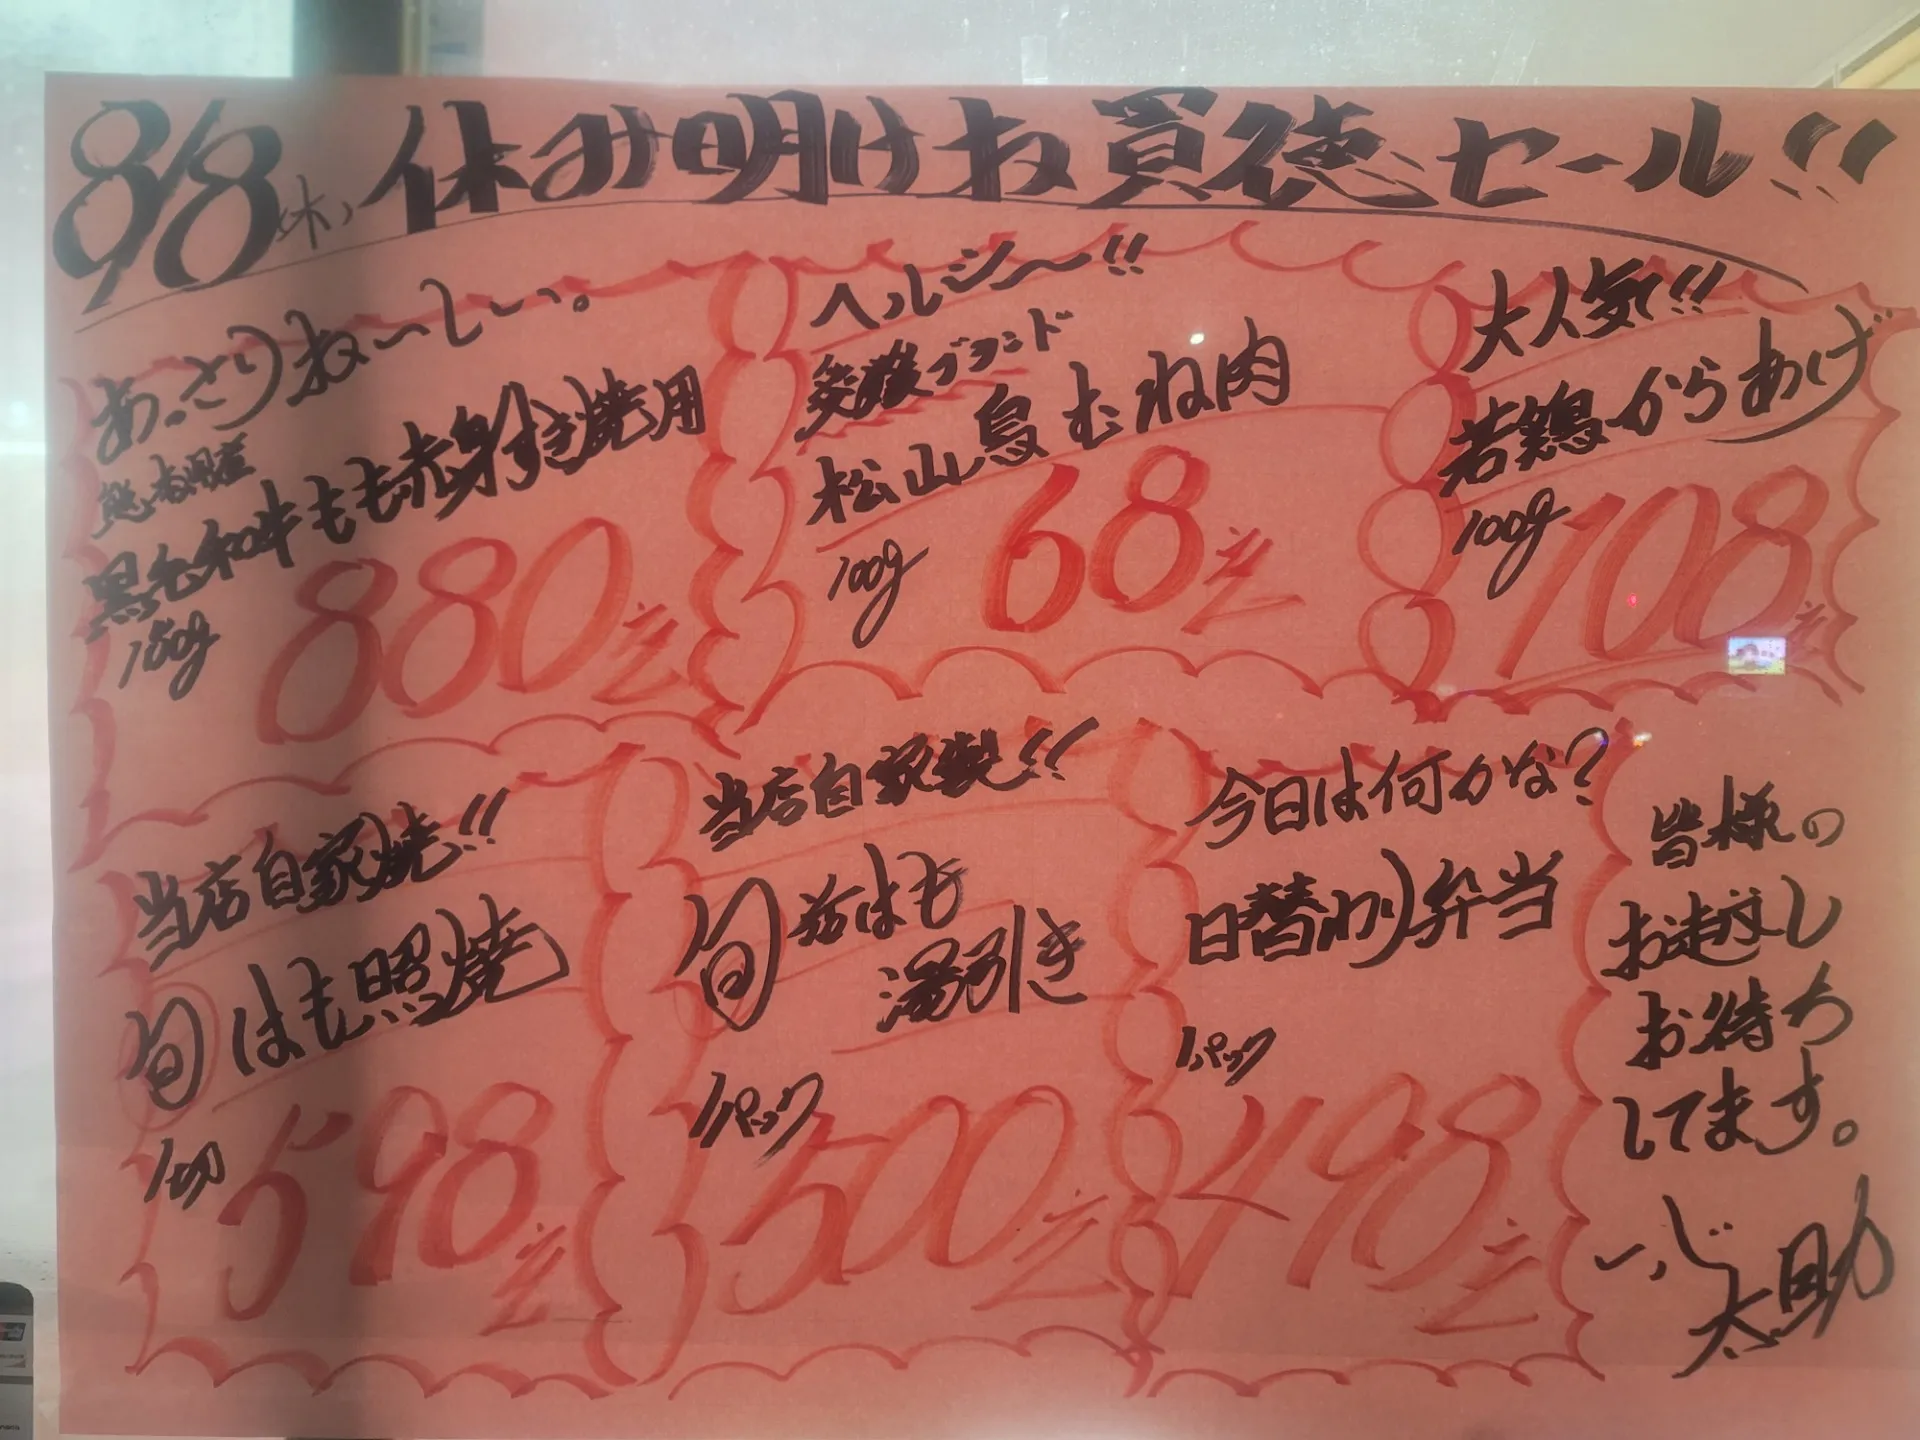 8/8(木) 休み明けお買徳セール!!
あっさりね〜しぃ。
熊本県産
黒毛和牛もも赤身すき焼用
100g
880円
ヘルシ〜!!
愛媛ブランド
松山鳥むね肉
100g 68円
大人気!!
若鶏からあげ
100g 108円
当店自家焼!!
旬はも照焼
1切 598円
当店自家製!!
旬 活はも
湯引き
1パック 500円
今日は何かな?
日替わり弁当
1パック
498円
皆様の
お越し
お待ち
してます。
太助